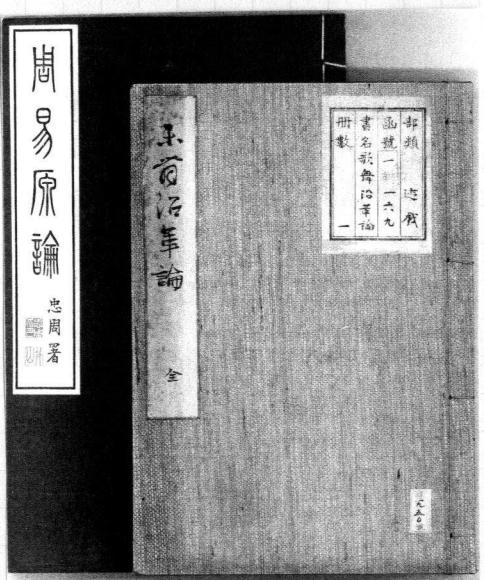 周易原論
忠周署
沿革論
全
部類 遊戯
函號 一 一六九
書名 歌舞沿革論
冊數 一
九五〇